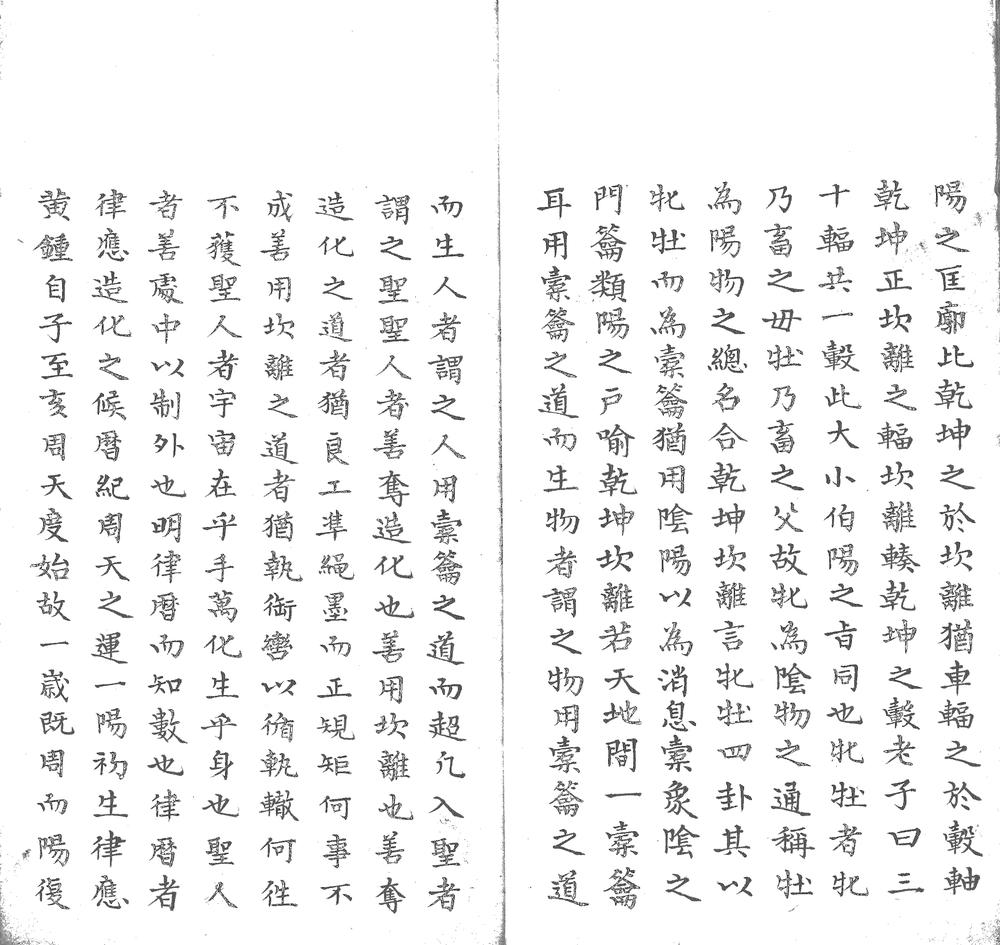 陽之匡廓比乾坤之於坎離猶車輻之於轂軸
乾坤正坎離之輻坎離輳乾坤之轂老子曰三
十輻共一轂此大小伯陽之旨同也牝牡者牝
乃畜之毋牡乃畜之父故牝為陰物之通稱牡
為陽物之總名合乾坤坎離言牝牡四卦其以
牝牡而為橐籥猶用陰陽以為消息橐象陰之
門籥類陽之戸喻乾坤坎離若天地間一橐籥
耳用橐籥之道而生物者謂之物用橐籥之道
而生人者謂之人用橐籥之道而超凡入聖者
謂之聖聖人者善奪造化也善用坎離也善奪
造化之道者猶良工準繩墨而正規矩何事不
成善用坎離之道者猶執銜轡以循軌轍何徃
不獲聖人者宇宙在乎手萬化生乎身也聖人
者善處中以制外也明律暦而知數也律暦者
律應造化之候暦紀周天之運一陽初生律應
黄鍾自子至亥周天度始故一歲既周而陽復